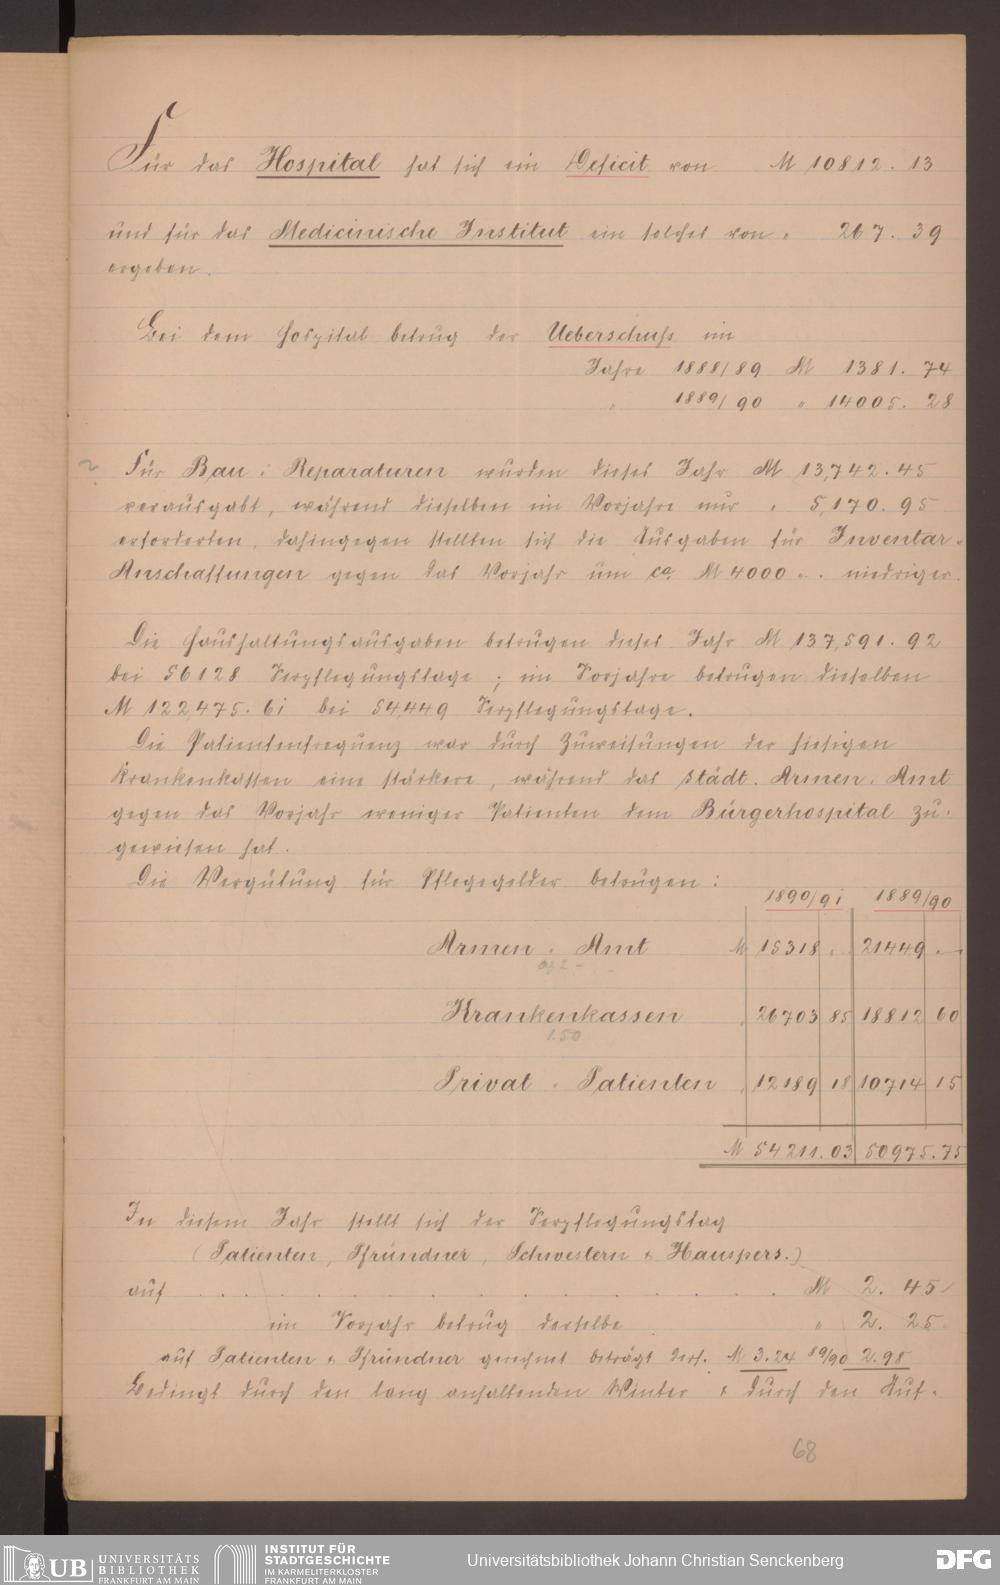 Für das Hospital hat sich ein Deficit von M 10812. 13
und für das Medicinische Institut ein solches von „ 267. 39
ergeben.
Bei dem Hospital betrug der Ueberschuß im
Jahre 1888/89 M 1381. 74
„ 1889/90 „ 14005. 28
Für Bau- Reparaturen wurden dieses Jahr M 13,742. 45
verausgabt, während dieselben im Vorjahre nur „ 5,170. 95
erforderten, dahingegen stellten sich die Ausgaben für Inventar-
Anschaffungen gegen das Vorjahr um ca. M 4000 „. niedriger.
Die Haushaltungsausgaben betrugen dieses Jahr M 137,591. 92
bei 56128 Verpflegungstage; im Vorjahre betrugen dieselben
M 122,475. 61 bei 54,449 Verpflegungstage.
Die Patientenfrequenz war durch Zuweisungen der hiesigen
Krankenkassen eine stärkere, während das städt. Armen-Amt
gegen das Vorjahr weniger Patienten dem Bürgerhospital zu-
gewiesen hat.
Die Vergütung für Pflegegelder betrugen:
1890/91 1889/90
Armen-Amt M 15318 „ 21449 „—
Krankenkassen „ 26703 85 18812 60
1.50
Privat-Patienten „ 12189 18 10714 15
M 54211.03 50975.75
In diesem Jahr stellt sich der Verpflegungstag
(Patienten, Pfründner, Schwestern & Hauspers.)
auf . . . . . . . . . . . . . . M 2. 45
im Vorjahr betrug derselbe „ 2. 25
auf Patienten & Pfründner gerechnet beträgt ders. M 3.24 89/90 2.98
Bedingt durch den lang anhaltenden Winter & durch den Auf-
68
UB UNIVERSITÄTS
BIBLIOTHEK
FRANKFURT AM MAIN
INSTITUT FÜR
STADTGESCHICHTE
IM KARMELITERKLOSTER
FRANKFURT AM MAIN
Universitätsbibliothek Johann Christian Senckenberg
DFG